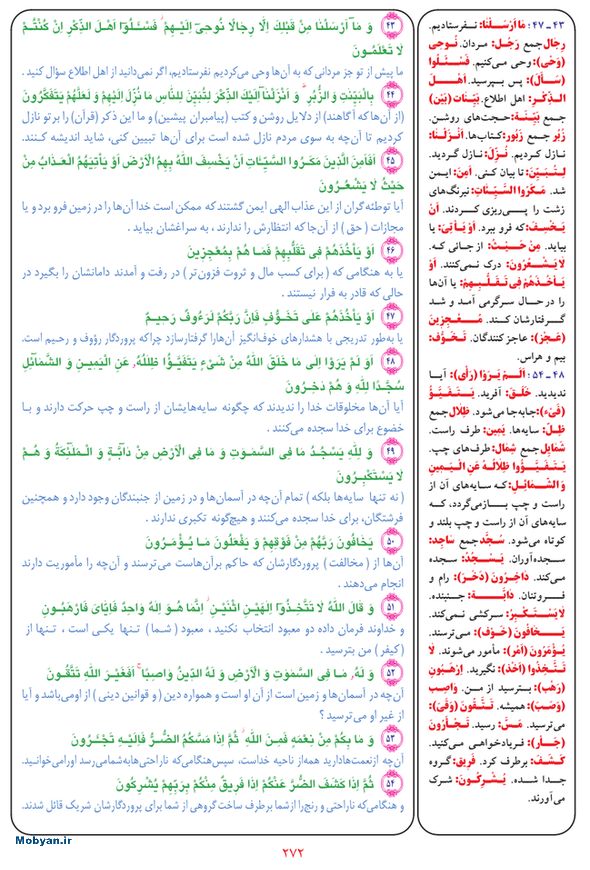 ۴۳ - ۴۷: مَا أَرْسَلْنَا: نفرستادیم.
رِجال جمع رَجُل: مردان. نُوحِی
(وَحْی): وحی می‌کنیم. فَسْئَلُوا
(سَأَلَ): پس بپرسید. أَهْلَ
الذِّکْرِ: اهل اطلاع. بَیِّنات (بَیْن)
جمع بَیِّنَة: حجت‌های روشن.
زُبُر جمع زَبُور: کتاب‌ها. أَنْزَلْنَا:
نازل کردیم. نُزِّلَ: نازل گردید.
لِتُبَیِّنَ: تا بیان کنی. أَمِنَ: ایمن
شد. مَکَرُوا السَّیِّئَاتِ: نیرنگ‌های
زشت را پــی‌ریزی کــردند. أَنْ
یَخْسِفَ: که فرو ببرد. أَوْ یَأْتِیَ: یا
بیاید. مِنْ حَیْثُ: از جائی که.
لا یَشْعُرُونَ: درک نمی‌کنند. أَوْ
یَأْخُذَهُمْ فِی تَقَلُّبِهِمْ: یا آن‌ها
را در حال سرگرمی آمـد و شد
گـرفتارشان کـند. مُعْجِزِینَ
(عَجْز): عاجز کنندگان. تَخَوُّف:
بیم و هراس.
۴۸ - ۵۴: أَلَمْ یَرَوْا (رَأْی): آیـا
ندیدید. خَلَقَ: آفرید. یَتَفَیَّؤُ
(فَیْء): جابه‌جا می‌شود. ظِلال جمع
ظِلّ: سایه‌ها. یَمِین: طرف راست.
شَمَائِل جمع شِمال: طرف‌های چپ.
یَتَفَیَّؤُا ظِلَالُهُ عَنِ الْیَمِینِ
وَ الشَّمَائِلِ: کـه سایه‌های آن از
راست و چپ بــازمی‌گردد، کـه
سایه‌های آن از راست و چپ بلند و
کوتاه می‌شود. سُجَّد جمع ساجِد:
سجده‌آوران. یَسْجُدُ: سجده
می‌کند. دَاخِرُونَ (دَخَرَ): رام و
فـروتنان. دَابَّة: جـنبنده.
لا یَسْتَکْبِرُ: سرکشی نمی‌کند.
یَخَافُونَ (خَوْف): می‌ترسند.
یُؤْمَرُونَ (أَمْر): مأمور می‌شوند. لا
تَتَّخِذُوا (أَخْذ): نگیرید. اِرْهَبُونِ
(رَهْب): بـترسید از مــن. واصِب
(وَصَبَ): همیشه. تَتَّقُونَ (وَقَیَ):
می‌ترسید. مَسَّ: رسید. تَجْأَرُونَ
(جَأْر): فـریادخواهی می‌کنید.
کَشَفَ: برطرف کرد. فَرِیق: گروه
جدا شـده. یُشْرِکُونَ: شرک
می‌آورند.
۴۳ وَ مَا أَرْسَلْنَا مِنْ قَبْلِکَ إِلَّا رِجَالًا نُوحِی إِلَیْهِمْ فَسْئَلُوا أَهْلَ الذِّکْرِ إِنْ کُنْتُمْ
لَا تَعْلَمُونَ
ما پیش از تو جز مردانی که به آن‌ها وحی می‌کردیم نفرستادیم، اگر نمی‌دانید از اهل اطلاع سؤال کنید .
۴۴ بِالْبَیِّنَتِ وَ الزُّبُرِ وَ أَنْزَلْنَا إِلَیْکَ الذِّکْرَ لِتُبَیِّنَ لِلنَّاسِ مَا نُزِّلَ إِلَیْهِمْ وَ لَعَلَّهُمْ یَتَفَکَّرُونَ
(از آن‌ها که آگاهند) از دلایل روشن و کتب (پیامبران پیشین) و ما این ذکر (قرآن) را بر تو نازل
کردیم تا آن‌چه به سوی مردم نازل شده است برای آن‌ها تبیین کنی، شاید اندیشه کنند.
۴۵ أَفَأَمِنَ الَّذِینَ مَکَرُوا السَّیِّئَاتِ أَنْ یَخْسِفَ اللَّهُ بِهِمُ الْأَرْضَ أَوْ یَأْتِیَهُمُ الْعَذَابُ مِنْ
حَیْثُ لَا یَشْعُرُونَ
آیا توطئه‌گران از این عذاب الهی ایمن گشتند که ممکن است خدا آن‌ها را در زمین فرو برد و یا
مجازات ( حق ) از آن‌جا که انتظارش را ندارند ، به سراغشان بیاید .
۴۶ أَوْ یَأْخُذَهُمْ فِی تَقَلُّبِهِمْ فَمَا هُمْ بِمُعْجِزِینَ
یا به هنگامی که ( برای کسب مال و ثروت فزون‌تر) در رفت و آمدند دامانشان را بگیرد در
حالی که قادر به فرار نیستند .
۴۷ أَوْ یَأْخُذَهُمْ عَلَی تَخَوُّفٍ فَإِنَّ رَبَّکُمْ لَرَءُوفٌ رَحِیمٌ
یا به‌طور تدریجی با هشدارهای خوف‌انگیز آن‌هارا گرفتارسازد چراکه پروردگار رؤوف و رحیم است.
۴۸ أَوَ لَمْ یَرَوْا إِلَی مَا خَلَقَ اللَّهُ مِنْ شَیْءٍ یَتَفَیَّؤُا ظِلَلُهُ عَنِ الْیَمِینِ وَ الشَّمَائِلِ
سُجَّدًا لِلَّهِ وَ هُمْ دَخِرُونَ
آیا آن‌ها مخلوقات خدا را ندیدند که چگونه سایه‌هایشان از راست و چپ حرکت دارند و بـا
خضوع برای خدا سجده می‌کنند .
۴۹ وَ لِلَّهِ یَسْجُدُ مَا فِی السَّمَوَتِ وَ مَا فِی الْأَرْضِ مِنْ دَابَّةٍ وَ الْمَلَئِکَةُ وَ هُمْ
لَا یَسْتَکْبِرُونَ
( نه تنها سایه‌ها بلکه ) تمام آن‌چه در آسمان‌ها و در زمین از جنبندگان وجود دارد و همچنین
فرشتگان، برای خدا سجده می‌کنند و هیچ‌گونه تکبری ندارند .
۵۰ یَخَافُونَ رَبَّهُمْ مِنْ فَوْقِهِمْ وَ یَفْعَلُونَ مَا یُؤْمَرُونَ
آن‌ها از ( مخالفت ) پروردگارشان که حاکم بر آن‌هاست می‌ترسند و آن‌چه را مأموریت دارند
انجام می‌دهند .
۵۱ وَ قَالَ اللَّهُ لَا تَتَّخِذُوا إِلَهَیْنِ اثْنَیْنِ إِنَّمَا هُوَ إِلَهٌ وَاحِدٌ فَإِیَّایَ فَارْهَبُونِ
و خداوند فرمان داده دو معبود انتخاب نکنید ، معبود ( شـما ) تـنها یکـی است ، تـنها از
( کیفر ) من بترسید .
۵۲ وَ لَهُ مَا فِی السَّمَوَتِ وَ الْأَرْضِ وَ لَهُ الدِّینُ وَاصِبًا أَفَغَیْرَ اللَّهِ تَتَّقُونَ
آن‌چه در آسمان‌ها و زمین است از آن او است و همواره دین ( و قوانین دینی ) از اومی‌باشد و آیا
از غیر او می‌ترسید ؟
۵۳ وَ مَا بِکُمْ مِنْ نِعْمَةٍ فَمِنَ اللَّهِ ثُمَّ إِذَا مَسَّکُمُ الضُّرُّ فَإِلَیْهِ تَجْئَرُونَ
آن‌چه از نعمت‌هادارید همه‌از ناحیه خداست، سپس‌هنگامی‌که ناراحتی‌هابه‌شمامی‌رسد اورامی‌خوانید.
۵۴ ثُمَّ إِذَا کَشَفَ الضُّرَّ عَنْکُمْ إِذَا فَرِیقٌ مِنْکُمْ بِرَبِّهِمْ یُشْرِکُونَ
و هنگامی‌که ناراحتی و رنج‌را ازشما برطرف ساخت گروهی از شما برای پروردگارشان شریک قائل شدند.
Mobyan.ir
۲۷۲